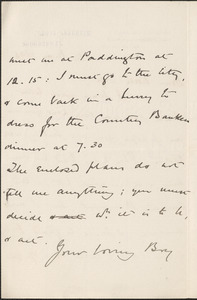 meet me at Paddington at
12.15: I must go to the City,
& come back in a hurry to
dress for the Country Bankers
dinner at 7.30
The enclosed plans do not
tell me anything: you must
decide wh. it is to be,
& act.
Your loving Boy